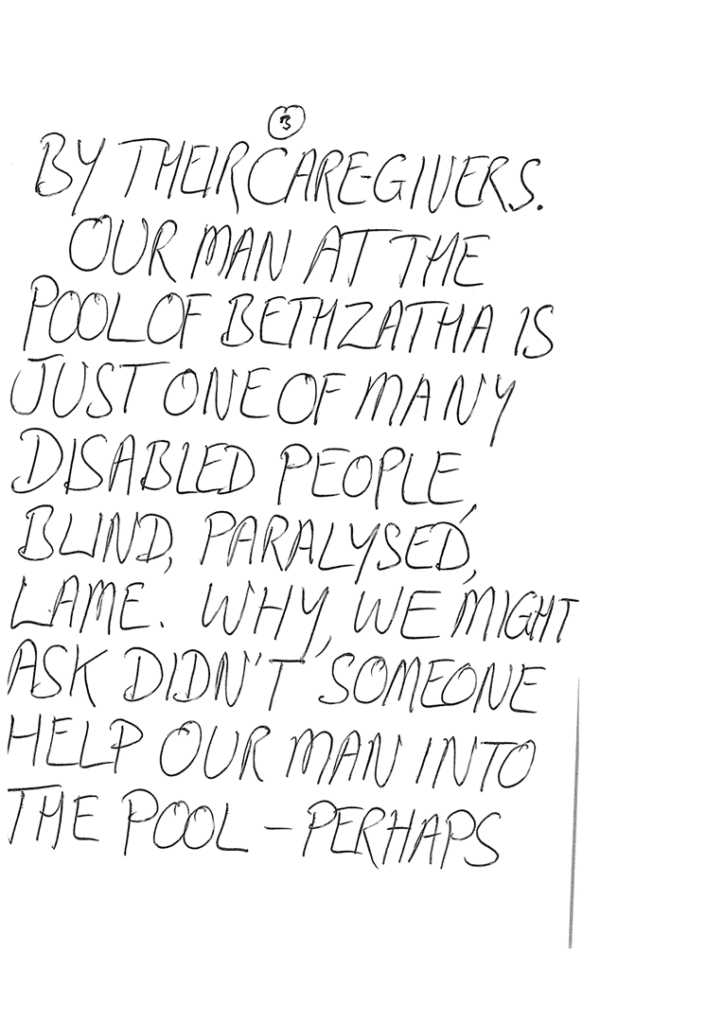 3
BY THEIR CAREGIVERS.
OUR MAN AT THE
POOL OF BETHZATHA IS
JUST ONE OF MANY
DISABLED PEOPLE,
BLIND, PARALYSED,
LAME. WHY, WE MIGHT
ASK DIDN'T SOMEONE
HELP OUR MAN INTO
THE POOL – PERHAPS